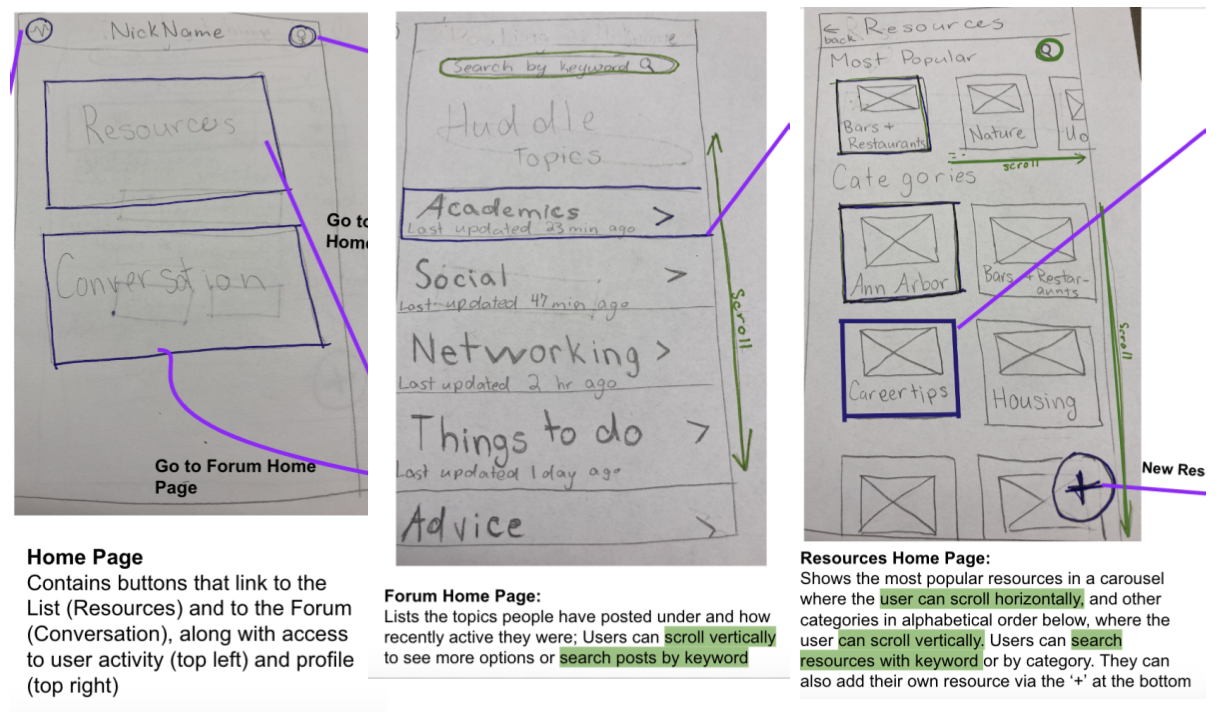 NickName
Resources
Conversation
Go to
Home
Go to Forum Home
Page
Home Page
Contains buttons that link to the
List (Resources) and to the Forum
(Conversation), along with access
to user activity (top left) and profile
(top right)
Search by keyword
Huddle
Topics
Academics >
Last updated 23 min ago
Social >
Last updated 47 min ago
Networking >
Last updated 2 hr ago
Things to do >
Last updated 1 day ago
Advice >
Scroll
Forum Home Page:
Lists the topics people have posted under and how
recently active they were; Users can scroll vertically
to see more options or search posts by keyword
← Resources
back
Most Popular
Bars +
Restaurants
Nature
scroll
Categories
Ann Arbor
Bars + Restar-
aunts
Career tips
Housing
+
Scroll
New Res
Resources Home Page:
Shows the most popular resources in a carousel
where the user can scroll horizontally, and other
categories in alphabetical order below, where the
user can scroll vertically. Users can search
resources with keyword or by category. They can
also add their own resource via the ‘+’ at the bottom